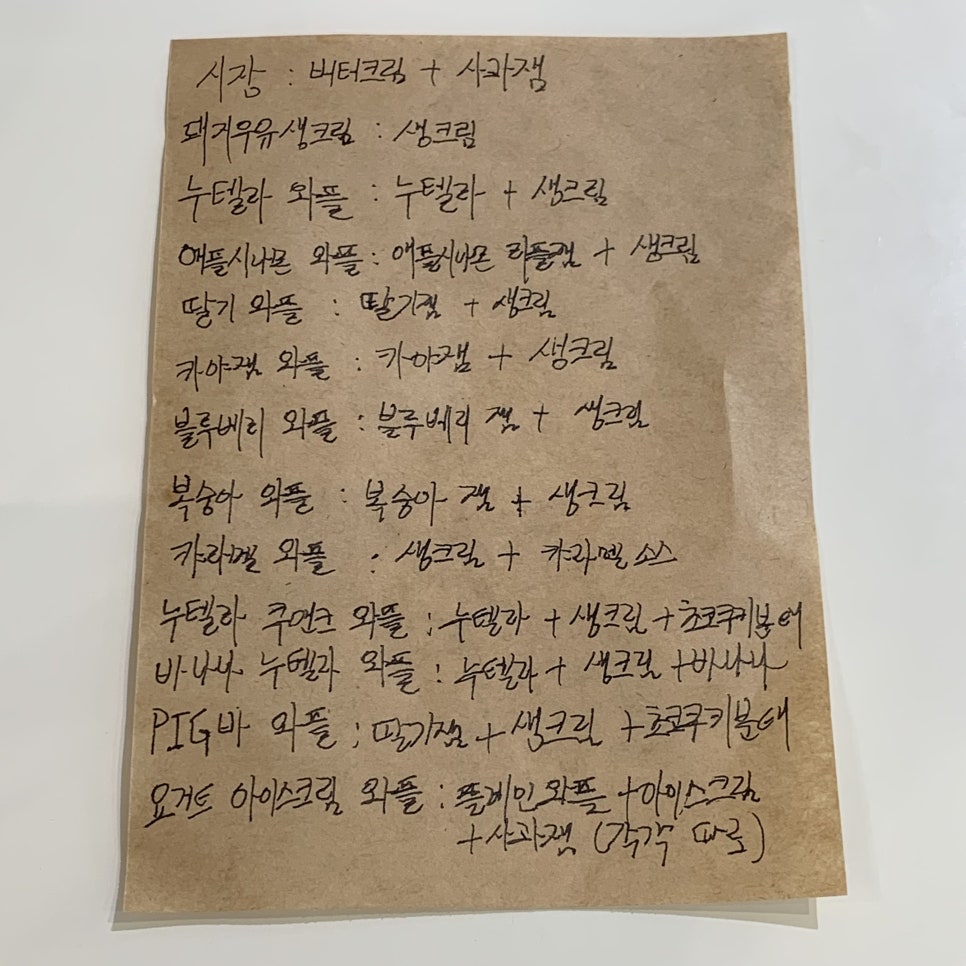 시장 : 버터크림 + 사과잼
돼지우유생크림 : 생크림
누텔라 와플 : 누텔라 + 생크림
애플시나몬 와플 : 애플시나몬 리플잼 + 생크림
딸기 와플 : 딸기잼 + 생크림
카야잼 와플 : 카야잼 + 생크림
블루베리 와플 : 블루베리 잼 + 생크림
복숭아 와플 : 복숭아 잼 + 생크림
캬라멜 와플 : 생크림 + 캬라멜소스
누텔라 쿠앤크 와플 : 누텔라 + 생크림 + 초코쿠키분태
바나나 누텔라 와플 : 누텔라 + 생크림 + 바나나
PIG바 와플 : 딸기잼 + 생크림 + 초코쿠키분태
요거트 아이스크림 와플 : 플레인와플 + 아이스크림
+ 사과잼 (각각 따로)